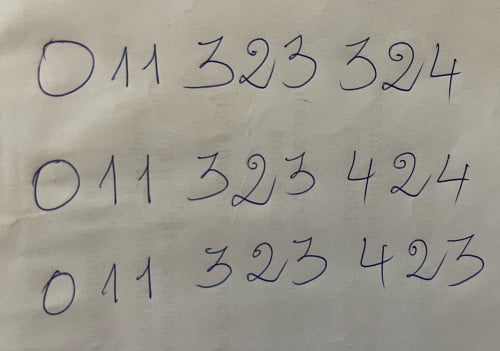 011 323 324
011 323 424
011 323 423